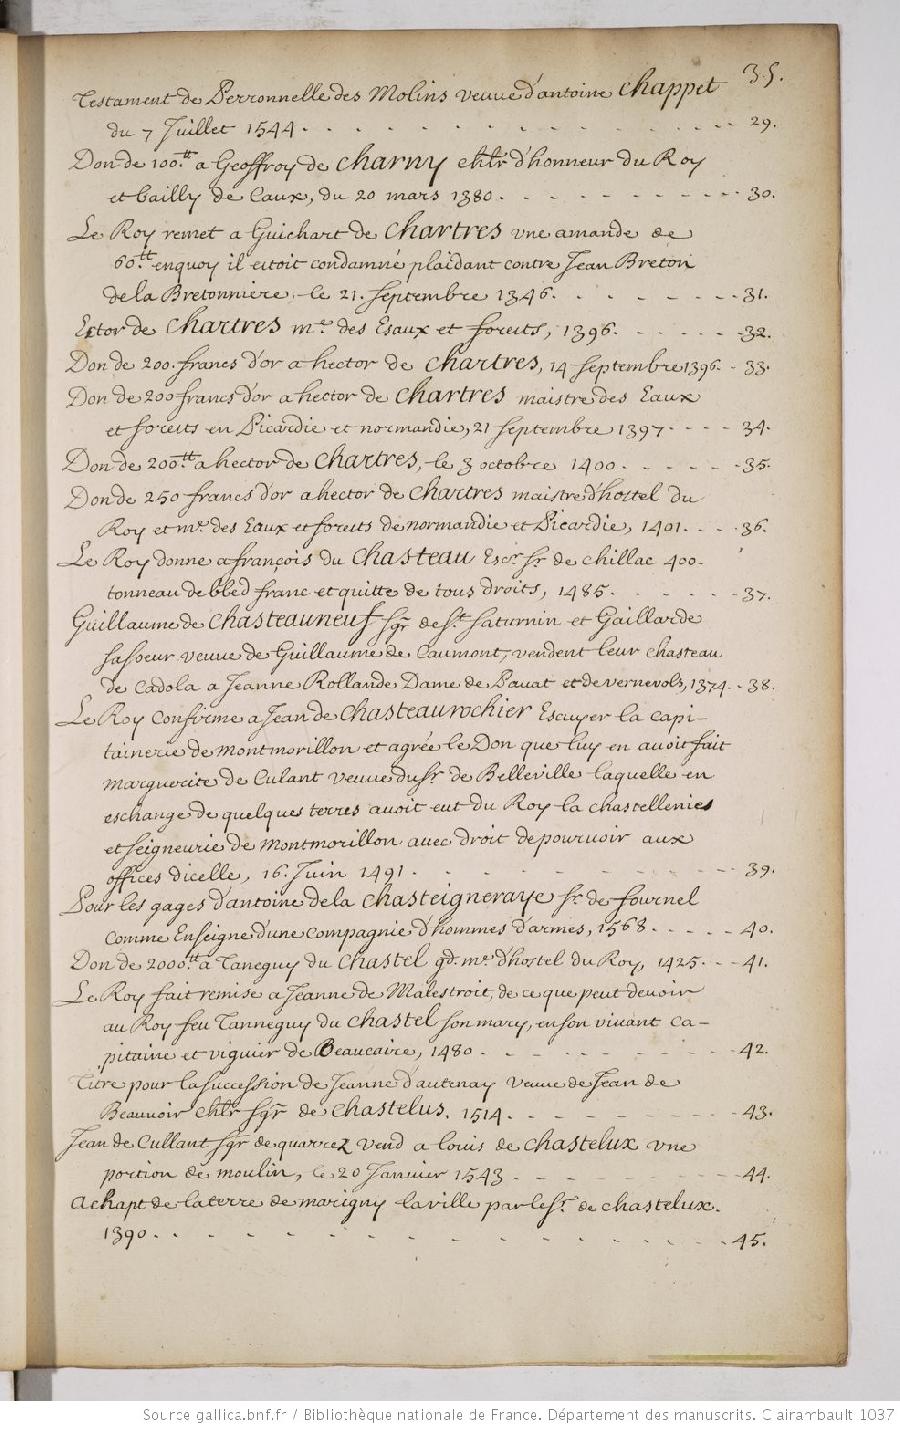 35.
Testament de Perronnelle des Molins veuve d'antoine chappet
du 7 Juillet 1544. 29.
Don de 100.tt a Geoffroy de charny chlr d'honneur du Roy
et bailly de Caux, du 20 mars 1380. 30.
Le Roy remet a Guichart de chartres vne amande de
60.tt enquoy il estoit condamné plaidant contre Jean Breton
de la Bretonniere, le 21. septembre 1346. 31.
Ector de chartres m.re des Eaux et forests, 1396. 32.
Don de 200. francs d'or a hector de chartres, 14 septembre 1396. 33.
Don de 200 francs d'or a hector de chartres maistre des Eaux
et forests en Picardie et normandie, 21 septembre 1397. 34.
Don de 200.tt a hector de chartres, le 3 octobre 1400. 35.
Don de 250 francs d'or a hector de chartres maistre d'hostel du
Roy et m.re des Eaux et forests de normandie et Picardie, 1401. 36.
Le Roy donne a françois du chasteau Esc.r sr de chillac 400.
tonneau de bled franc et quitte de tous droits, 1485. 37.
Guillaume de chasteauneuf sgr de st saturnin et Gaillarde
sa soeur veuve de Guillaume de Caumont, vendent leur chasteau
de Cadola a Jeanne Rollande Dame de Pauat et de vernevols, 1374. 38.
Le Roy confirme a Jean de chasteaurochier Escuyer la capi-
tainerie de montmorillon et agrée le Don que luy en auoit fait
marguerite de Culant veuve du sr de Belleville laquelle en
eschange de quelques terres auoit eut du Roy la chastellenies
et seigneurie de montmorillon auec droit de pourvoir aux
offices dicelle, 16. Juin 1491. 39.
Pour les gages d'antoine de la chasteigneraye sr de fournel
comme Enseigne d'une compagnie d'hommes d'armes, 1568. 40.
Don de 2000.tt a Taneguy du chastel gd. m.re d'hostel du Roy, 1425. 41.
Le Roy fait remise a Jeanne de Malestroit, de ce que peut devoir
au Roy feu Tanneguy du chastel son mary, en son vivant ca-
pitaine et viguier de Beaucaire, 1480. 42.
Titre pour la succession de Jeanne d'autenay veuve de Jean de
Beauvoir chlr sgr de chastelus. 1514. 43.
Jean de Cullant sgr de quarrez vend a louis de chastelux vne
portion de moulin, le 20 Janvier 1543 44.
Achapt de la terre de marigny la ville par le sr. de chastelux.
1390. 45.
Source gallica.bnf.fr / Bibliothèque nationale de France. Département des manuscrits. Clairambault 1037